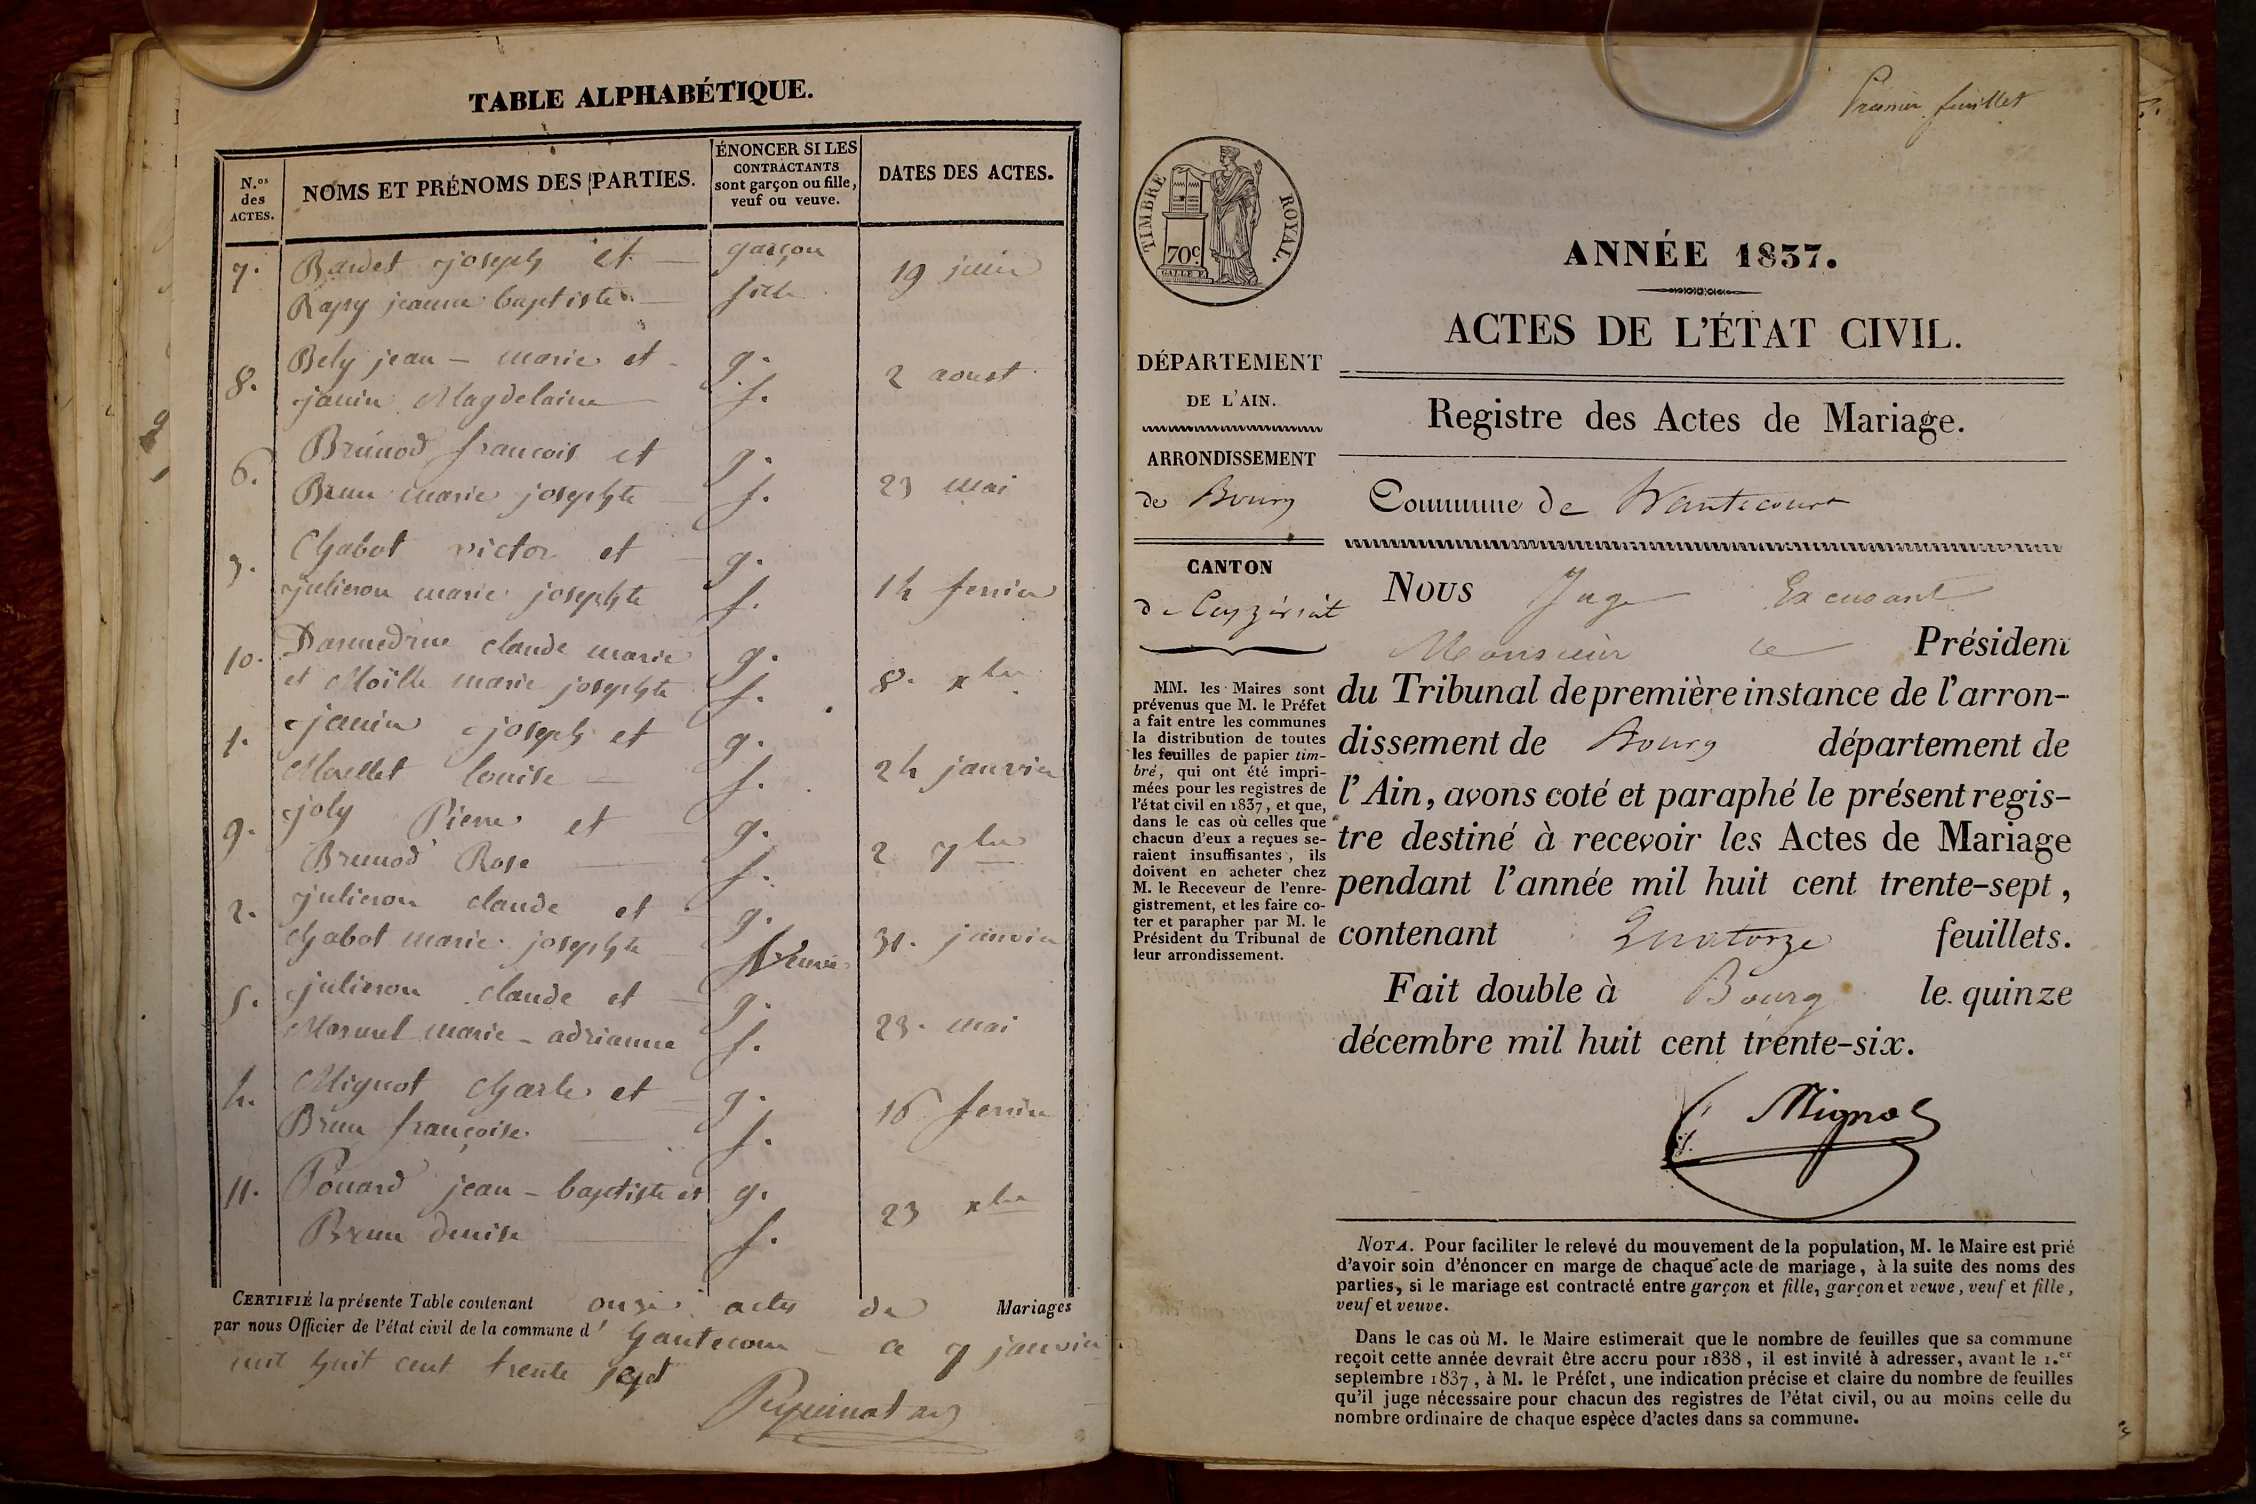 TABLE ALPHABÉTIQUE.
N.os des ACTES.
NOMS ET PRÉNOMS DES PARTIES.
ÉNONCER SI LES
CONTRACTANTS
sont garçon ou fille,
veuf ou veuve.
DATES DES ACTES.
7. Bardet joseph et garçon 19 juin
Rapy jeanne baptiste fille
8. Bely jean - marie et g. 2 aoust
janin Magdelaine f.
6. Brunod francois et g. 23 mai
Brun marie josephte f.
3. Chabot victor et g. 14 fevrier
julieron marie josephte f.
10. claude marie g. 8. xbre
et Moille marie josephte f.
1. janin joseph et g. 24 janvier
Morellet louise f.
9. joly Pierre et g. 2 7bre
Brunod Rose f.
2. julieron claude et g. 31. janvier
Chabot marie josephte veuve
5. julieron claude et g. 23. mai
marie - adrianne f.
4. Mignot Charle et g. 16 fevrier
Brun françoise f.
11. Pouard jean - baptiste et g. 23 xbre
Brun denise f.
CERTIFIÉ la présente Table contenant onze actes de Mariages
par nous Officier de l'état civil de la commune d' hautecour ce 7 janvier
mil huit cent trente sept
Premier feuillet
TIMBRE ROYAL.
70c.
ANNÉE 1837.
ACTES DE L'ÉTAT CIVIL.
Registre des Actes de Mariage.
DÉPARTEMENT
DE L'AIN.
ARRONDISSEMENT
de Bourg
CANTON
de Ceyzériat
MM. les Maires sont
prévenus que M. le Préfet
a fait entre les communes
la distribution de toutes
les feuilles de papier tim-
bré, qui ont été impri-
mées pour les registres de
l'état civil en 1837, et que,
dans le cas où celles que
chacun d'eux a reçues se-
raient insuffisantes, ils
doivent en acheter chez
M. le Receveur de l'enre-
gistrement, et les faire co-
ter et parapher par M. le
Président du Tribunal de
leur arrondissement.
Commune de Hautecourt
Nous Juge Excusant
Monsieur le Président
du Tribunal de première instance de l'arron-
dissement de Bourg département de
l'Ain, avons coté et paraphé le présent regis-
tre destiné à recevoir les Actes de Mariage
pendant l'année mil huit cent trente-sept,
contenant Quatorze feuillets.
Fait double à Bourg le quinze
décembre mil huit cent trente-six.
Mignot
NOTA. Pour faciliter le relevé du mouvement de la population, M. le Maire est prié
d'avoir soin d'énoncer en marge de chaque acte de mariage, à la suite des noms des
parties, si le mariage est contracté entre garçon et fille, garçon et veuve, veuf et fille,
veuf et veuve.
Dans le cas où M. le Maire estimerait que le nombre de feuilles que sa commune
reçoit cette année devrait être accru pour 1838, il est invité à adresser, avant le 1.er
septembre 1837, à M. le Préfet, une indication précise et claire du nombre de feuilles
qu'il juge nécessaire pour chacun des registres de l'état civil, ou au moins celle du
nombre ordinaire de chaque espèce d'actes dans sa commune.